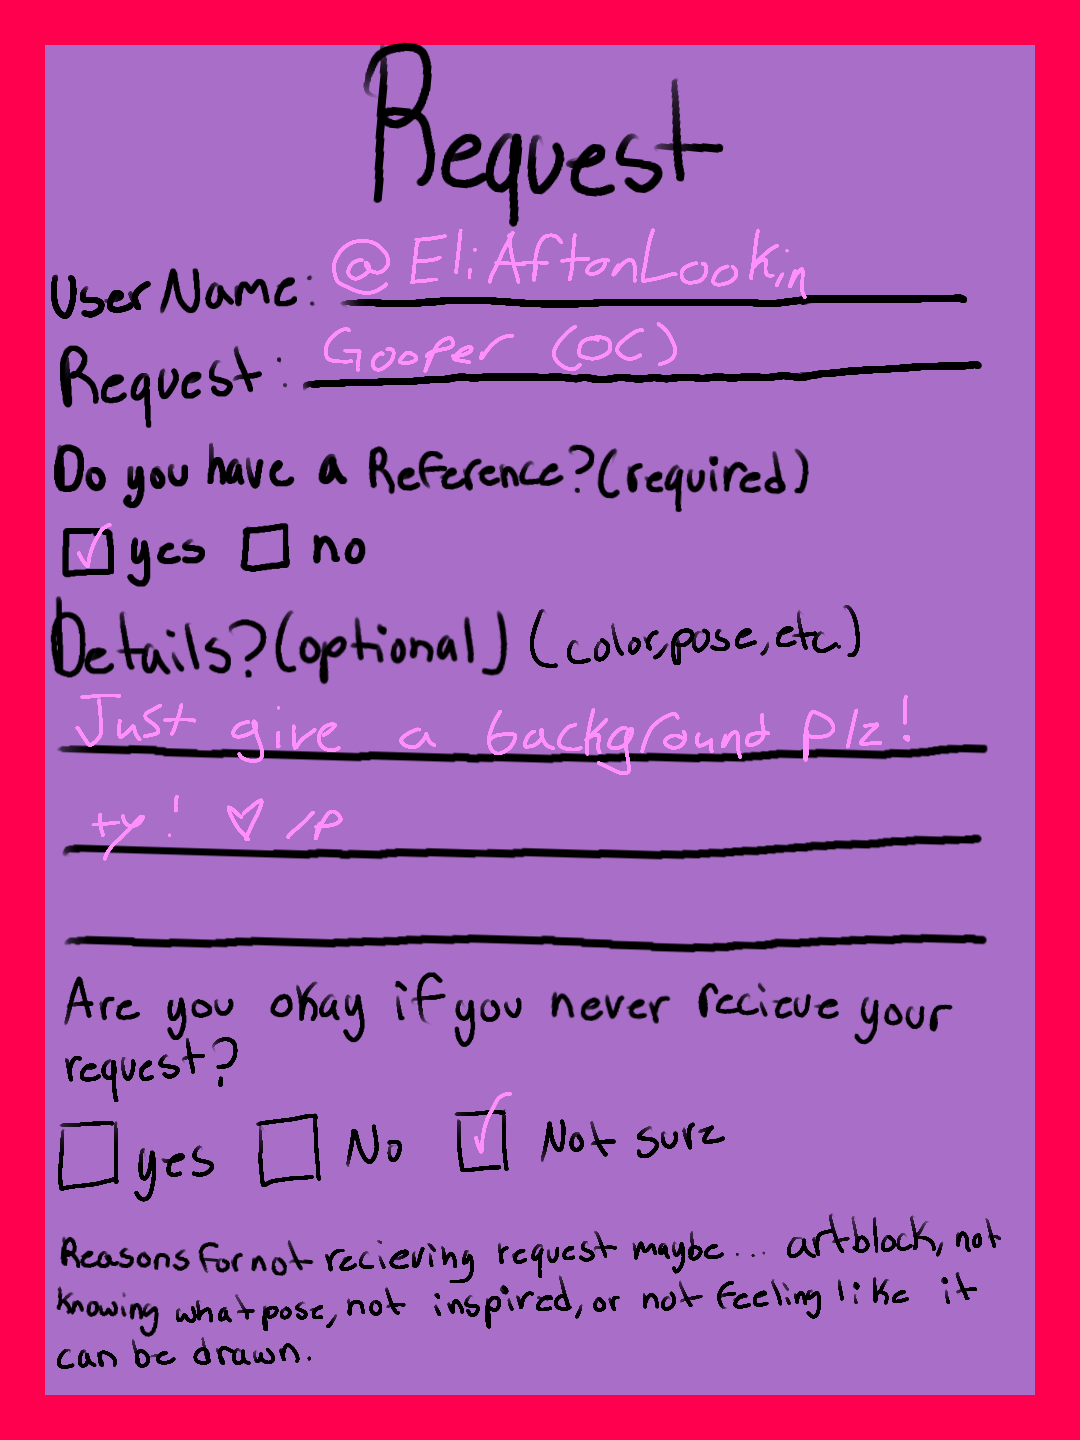 Request
UserName: @EliAftonLookin
Request: Gooper (OC)
Do you have a Reference? (required)
yes no
Details? (optional) (color, pose, etc.)
Just give a background plz!
ty! ♡ /p
Are you okay if you never recieve your
request?
yes No Not sure
Reasons for not recieving request maybe... artblock, not
knowing what pose, not inspired, or not feeling like it
can be drawn.